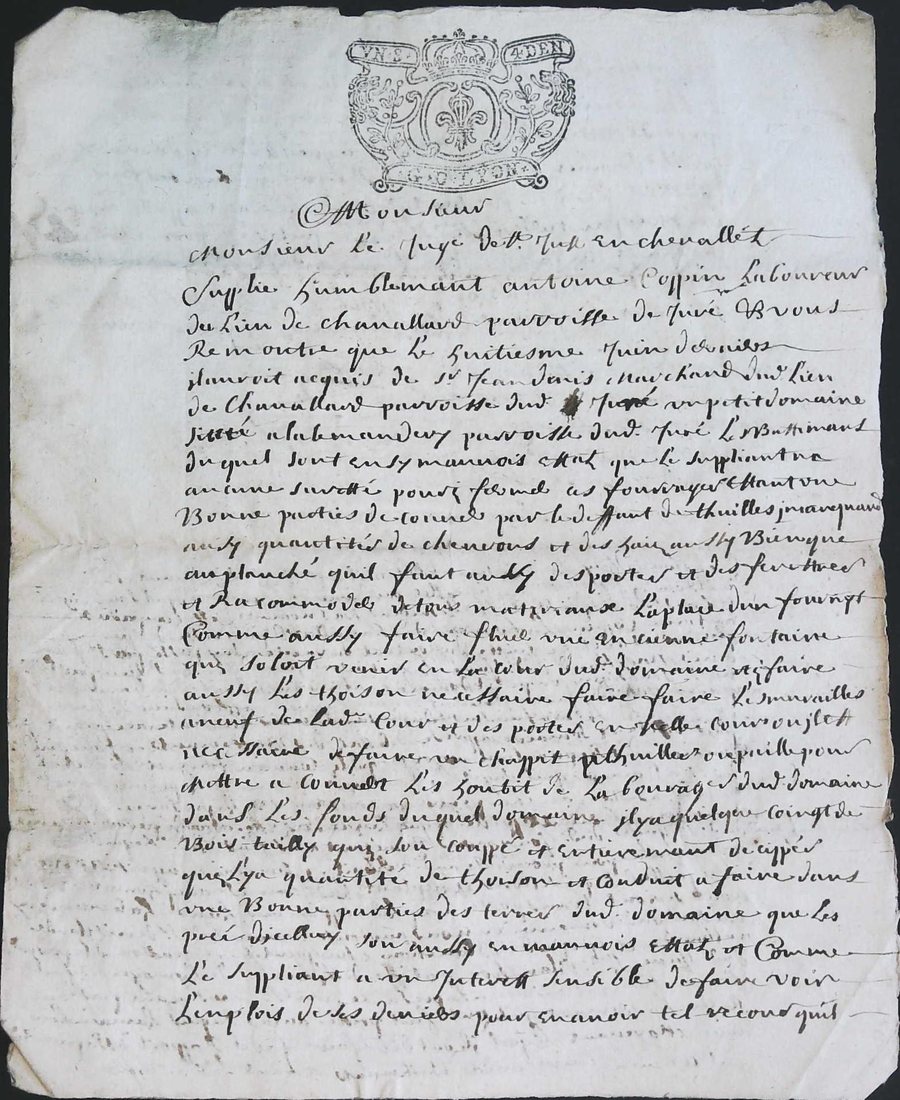 VN S. 4 DEN
G. D. LYON
Monsieur
Monsieur Le Juge de St Just en chevallet
Supplie humblemant antoine Coppin Laboureur
du Lieu de Chavallard parroisse de Juré & vous
Remontre que Le huitiesme Juin dernier
jlauroit acquis de sr Jean denis Marchand dud. Lieu
de Chavallard parroisse dud. Juré vn petit domaine
sittué a parroisse dud. Juré Les Battimans
duquel sont en sy mauuois Ettat que Le suppliant na
aucune suretté pour fermé ces fourrages Ettant vne
Bonne parties de couuer par le deffant de thuilles j manquand
aussy quantités de cheurons et des aussy Bien que
au planché quil faut aussy des portes et des fenettres
et Racommoder de tous matteriaux La plaie dun fourn
Comme aussy faire vne encienne fontaine
quy soloit venir en La cour dud. domaine et j faire
aussy Les thoison necessaire faire faire Les murailles
a neuf de Lad. Cour et des portes en Jcelle cour ou jl ett
necessaire de faire un chappit thuilles ou paille pour
Mettre a couuert Les houtit de La bourages dud. domaine
dans Les fonds duquel domaine jl y a quelque coingt de
Bois tailly quy son couppé et entierement
que Lya quantité de thoison et conduit a faire dans
vne Bonne parties des terres dud. domaine que Les
preé dicelluy son aussy en mauuois Ettat et Comme
Le suppliant a vn Jnterest sensible de faire voir
Lemplois de ses deniers pour en auoir tel recour quil